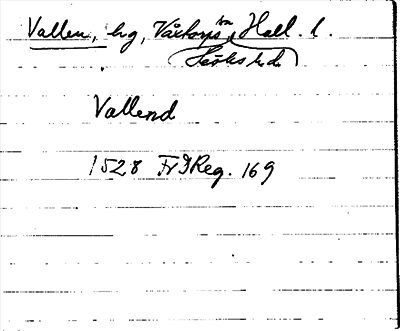 Vallen, hg, Växtorps sn, Hall. l.
(Höks hd)
Vallend
1528 FrIReg. 169